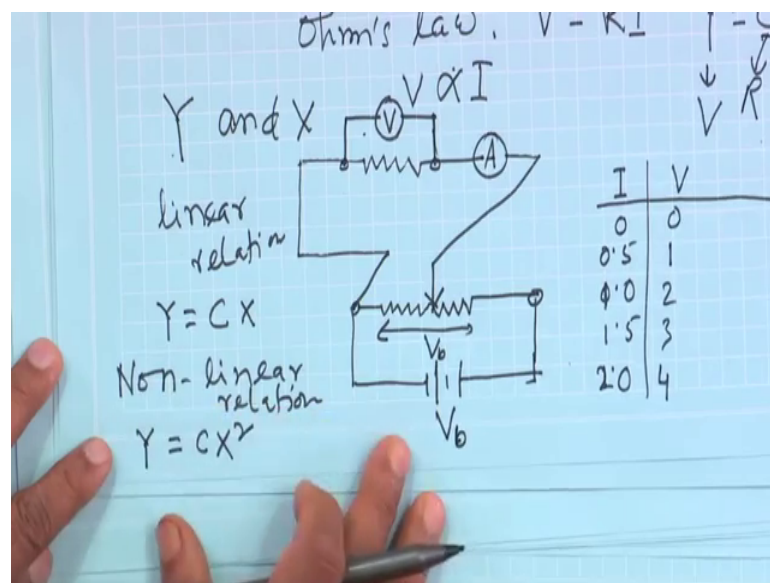 Ohm's law. V = RI
V ∝ I
Y and X
V
A
linear
relation
Y = CX
Non-linear
relation
Y = CX²
V_b
V_b
V R
I V
0 0
0.5 1
1.0 2
1.5 3
2.0 4